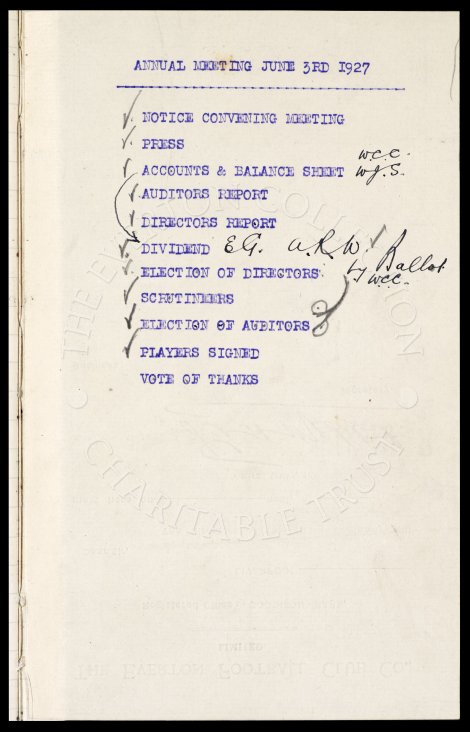 ANNUAL MEETING JUNE 3RD 1927
NOTICE CONVENING MEETING
PRESS
ACCOUNTS & BALANCE SHEET W.C.C. W.J.S.
AUDITORS REPORT
DIRECTORS REPORT
DIVIDEND E.G. A.R.W.
ELECTION OF DIRECTORS by Ballot W.C.C.
SCRUTINEERS
ELECTION OF AUDITORS
PLAYERS SIGNED
VOTE OF THANKS
THE EVERTON COLLECTION
CHARITABLE TRUST
LIMITED.
THE EVERTON FOOTBALL CLUB CO.,